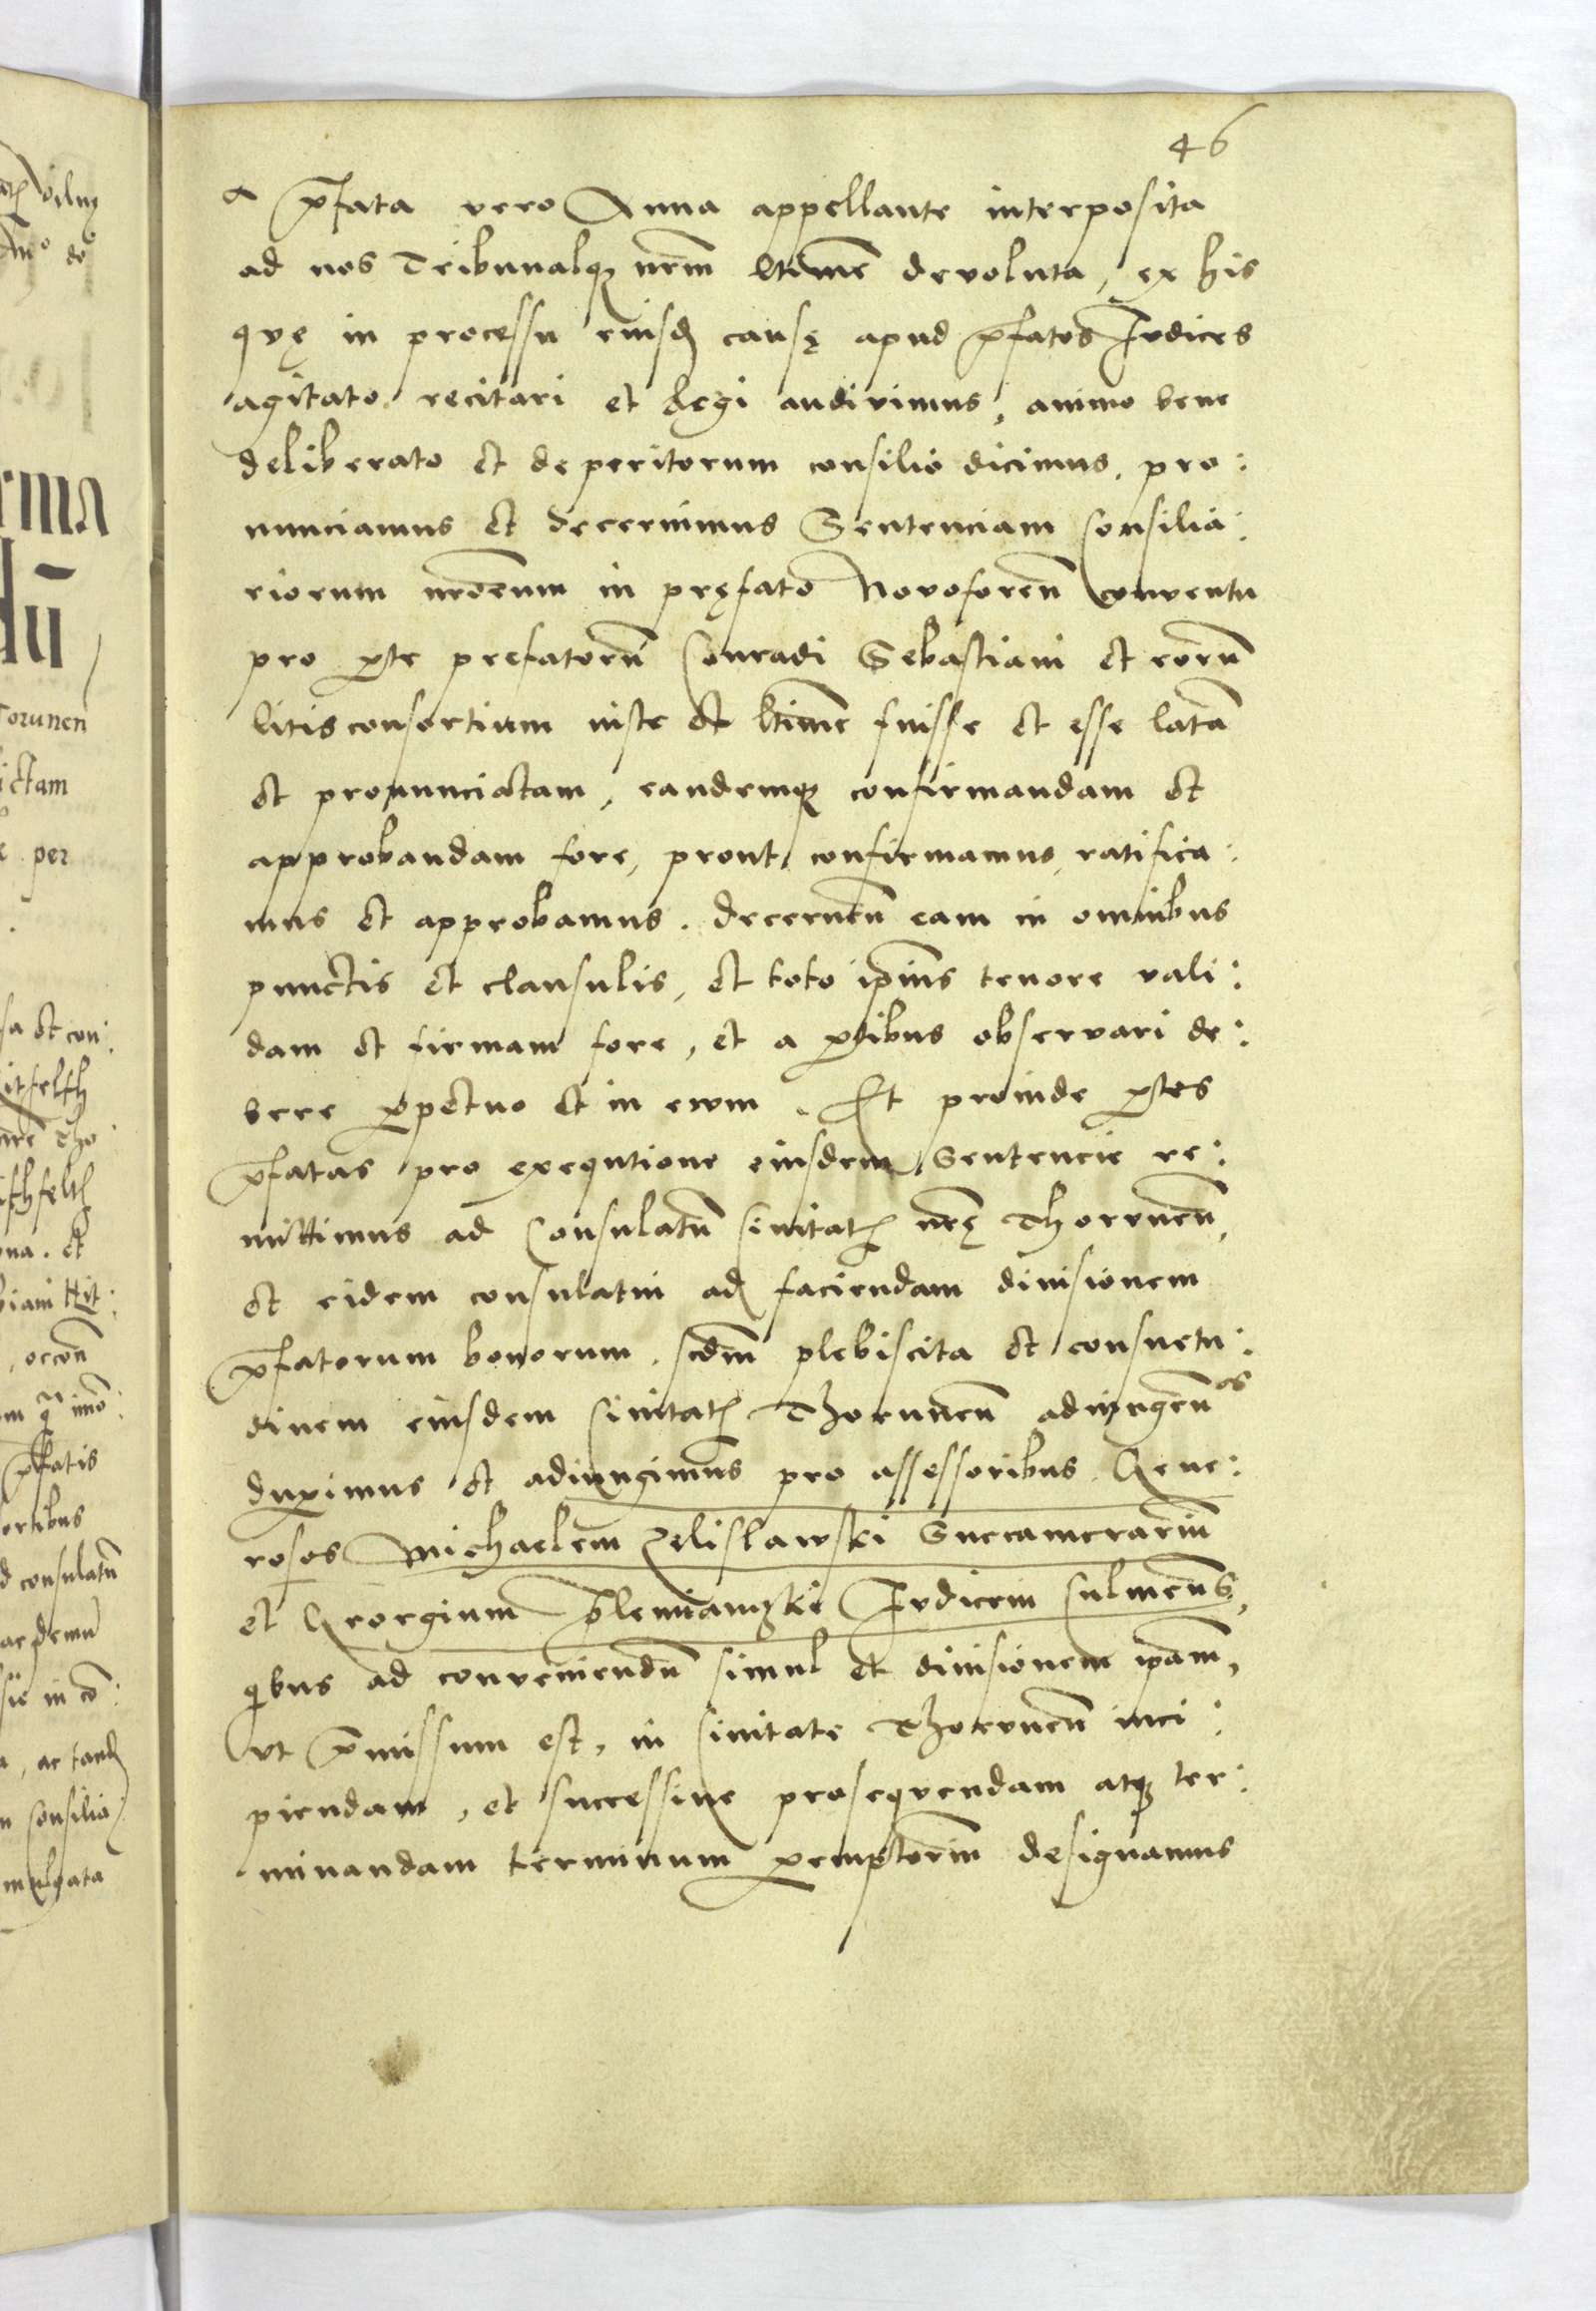 46
a p̄fata vero Anna appellante interposita
ad nos Tribunalqꝫ nr̄m ltīme devoluta, ex his
qvę in processu eiusd causę apud p̄fatos Iudices
agitato recitari et legi audivimus, animo bene
deliberato et de peritorum consilio dicimus, pro:
nunciamus et decernimus Sententiam Consilia:
riorum nr̄orum in pręfato Novoforen̄ conventu
pro ꝑte prefatorū Conradi Sebastiani et eorū
litisconsortium iuste et ltīme fuisse et esse latā
et pronunciatam, eandemqꝫ confirmandam et
approbandam fore, prout confirmamus, ratifica:
mus et approbamus. Decernen̄ eam in omnibus
punctis et clausulis, et toto ip̄ius tenore vali:
dam et firmam fore, et a ꝑtibus observari de:
bere ꝑpetuo et in ewm. Et proinde ꝑtes
p̄fatas pro exequtione eiusdem Sentencie re:
mittimus ad Consulatū Civitatꝭ nr̄ę Thorunen̄,
et eidem consulatui ad faciendam divisionem
p̄fatorum bonorum, scdm̄ plebiscita et consuetu:
dinem eiusdem Civitatꝭ Thorunen̄ adiungen̄os
duximus et adiungimus pro assessoribus Gene:
rosos Michaelem Zelislawski Succamerariū
et Georgium Plemiamzki Iudicem Culmen̄s,
qibus ad conveniendū simul et divisionem ip̄am,
ut p̄missum est, in Civitate Thorunen̄ inci:
piendam, et successive prosequendam atqꝫ ter:
minandam terminum ꝑemptoriū designamus